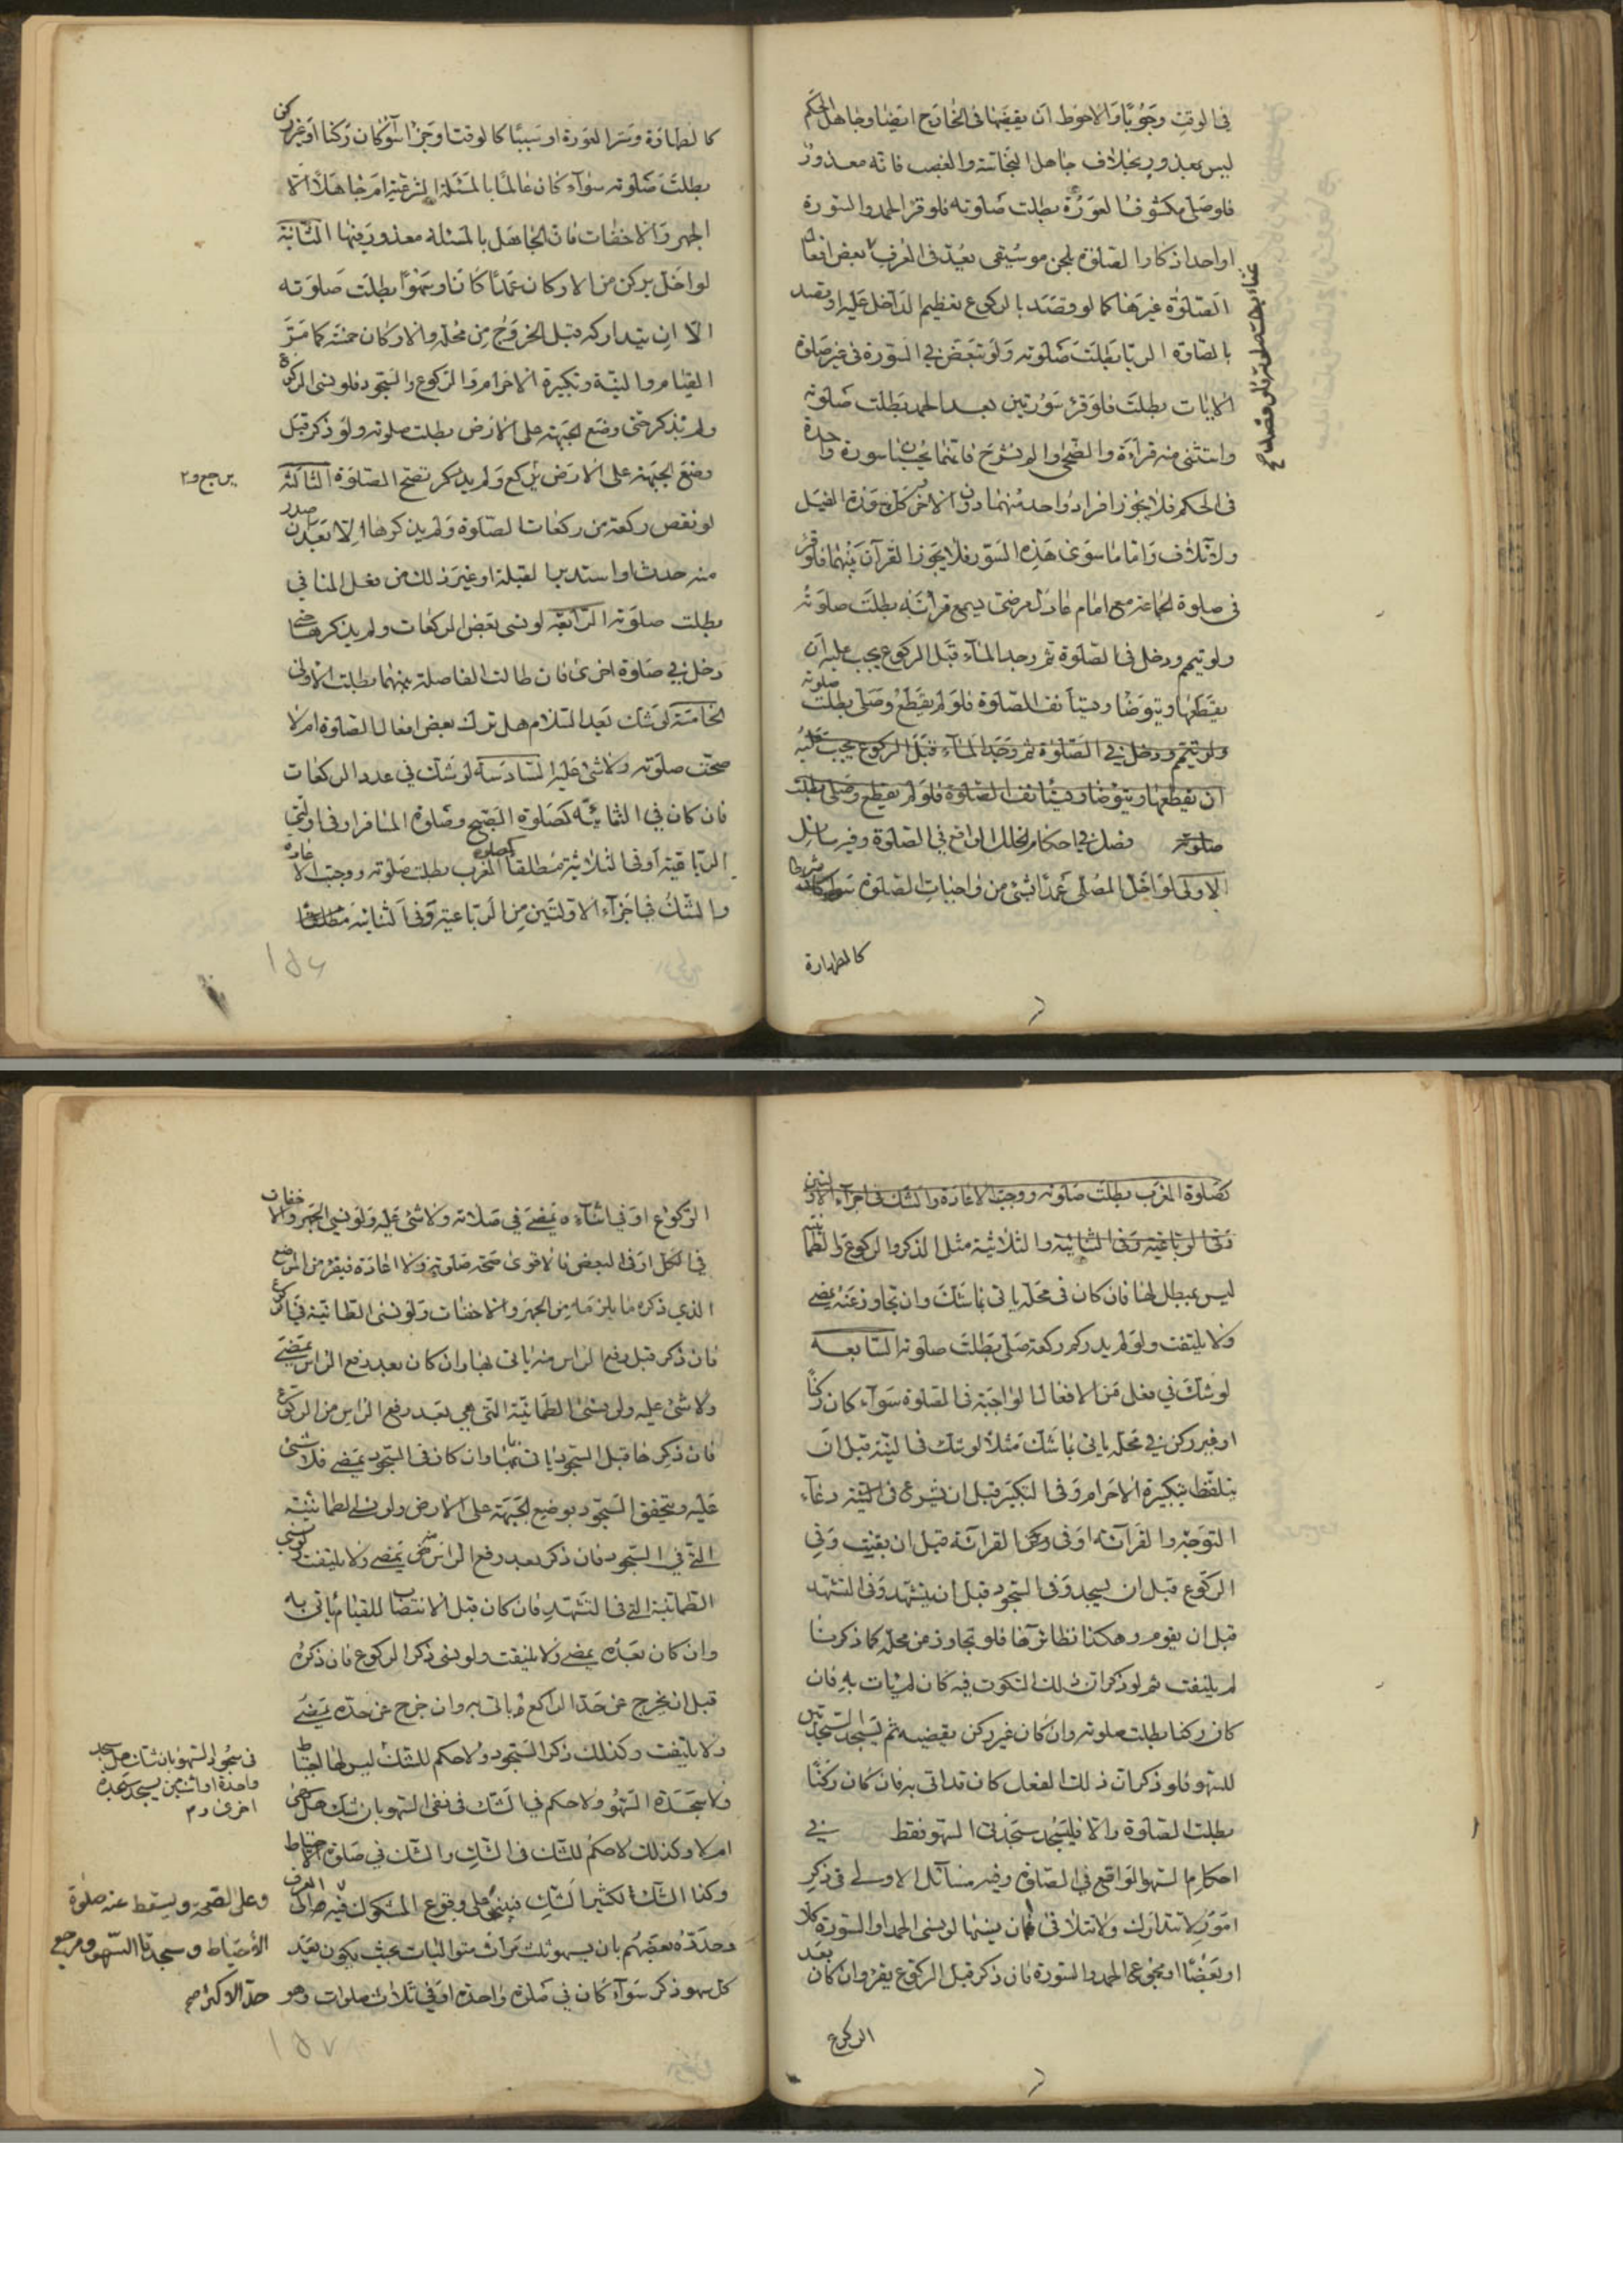 في الوقت وجوبًا والاحوط ان يقضيها في الخارج ايضا وجاهل الحكم
ليس بمعذور بخلاف جاهل النجاسة والغصب فانه معذور
فلو صلى مكشوف العورة بطلت صلوته فلو قرأ الحمد والسورة
او احد اذكار الصلوة بلحن موسيقى يعدّ في العرف غناء بطلت صلوته فلو قصد بعض افعال
الصلوة غيرها كما لو قصد بالركوع تعظيم الداخل عليه او قصد
بالصلوة الريا بطلت صلوته ولو تبعض في السورة في غير صلوة
الايات بطلت فلو قرء سورتين بعد الحمد بطلت صلوته
واستثنى منه قراءة والضحى والم نشرح فانهما بحسبان سورة واحدة
في الحكم فلا يجوز افراد واحد منهما دون الاخر كسورة الفيل
ولايلاف واما ما سوى هذه السور فلا يجوز القرآن بينهما فلو قرء
في صلوة الجماعة مع امام عادل مرضى يسمع قرائته بطلت صلوته
ولو تيمم ودخل في الصلوة ثم وجد الماء قبل الركوع يجب عليه ان
يقطعها ويتوضا ويستأنف الصلوة فلو لم يقطع وصلى بطلت صلوته
ولو تيمم ودخل في الصلوة ثم وجد الماء قبل الركوع يجب عليه
ان يقطعها ويتوضا ويستأنف الصلوة فلو لم يقطع وصلى بطلت
صلوته فصل في احكام الخلل الواقع في الصلوة وفيه مسائل
الاولى لو اخل المصلى عمدًا بشئ من واجبات الصلوة شرطا كان
كالطهارة
كالطهارة وستر العورة او سببًا كالوقت او جزءا سواء كان ركنا او غير ركن
بطلت صلوته سواء كان عالمًا بالمسئلة الشرعية ام جاهلًا الا
الجهر والاخفات فان الجاهل بالمسئلة معذور فيهما الثانية
لو اخل بركن من الاركان عمدًا كان او سهوًا بطلت صلوته
الا ان يتداركه قبل الخروج من محله والاركان خمسة كما مرّ
القيام والنية وتكبيرة الاحرام والركوع والسجود فلو نسى الركوع
ولم يتذكر حتى وضع الجبهة على الارض بطلت صلوته ولو ذكر قبل
وضع الجبهة على الارض يركع ولم يذكر تصح الصلوة الثالثة
لو نقص ركعة من ركعات الصلوة ولم يذكرها الا بعد ان صدر
منه حدث او استدبر القبلة او غير ذلك من فعل المنافي
بطلت صلوته الرابعة لو نسى بعض الركعات ولم يذكرها حتى
دخل في صلوة اخرى فان طالت الفاصلة بينهما بطلت الاولى
الخامسة لو شك بعد السلام هل ترك بعض افعال الصلوة ام لا
صحّت صلوته ولا شئ عليه السادسة لو شك في عدد الركعات
فان كان في الثنائية كصلوة الصبح وصلوة المسافر او في اولتى
الرباعية او في الثلاثية مطلقا كصلوة المغرب بطلت صلوته ووجبت الاعادة
والشك في اجزاء الاولتين من الرباعية وفي الثنائية مطلقا
كصلوة المغرب بطلت صلوته ووجب الاعادة والشك في اجزاء الاولتين
وفي الرباعية وفي الثنائية والثلاثية مثل الذكر والركوع والطمانينة
ليس بمبطل لها فان كان في محله ياتي بما شك وان تجاوز عنه يمضى
ولا يلتفت ولو لم يدر كم ركعة صلى بطلت صلوته السابعة
لو شك في فعل من الافعال الواجبة في الصلوة سواء كان ركنًا
او غير ركن في محله ياتي بما شك مثلا لو شك في النية قبل ان
يتلفظ بتكبيرة الاحرام وفي التكبير قبل ان يشرع في دعاء
التوجه والقرائة او في القرائة قبل ان يقنت وفي
الركوع قبل ان يسجد وفي السجود قبل ان يتشهد وفي التشهد
قبل ان يقوم وهكذا نظائرها فلو تجاوز من محله كما ذكرنا
لم يلتفت ثم لو ذكر ان ذلك المشكوك فيه كان لم يات به فان
كان ركنا بطلت صلوته وان كان غير ركن يقضيه ثم يسجد السجدتين
للسهو فلو ذكر ان ذلك الفعل كان قد اتى به فان كان ركنًا
بطلت الصلوة والا فليسجد سجدتي السهو فقط في
احكام السهو الواقع في الصلوة وفيه مسائل الاولى في ذكر
امور لا تتدارك ولا تتلافى فان نسيها لو نسى الحمد او السورة كلا
او بعضًا او مجموع الحمد والسورة فان ذكر قبل الركوع يقرء وان كان بعد
الركوع
الركوع او في اثناءه يمضى في صلاته ولا شئ عليه ولو نسى الجهر والاخفات
في الكل او في البعض فالاقوى صحة صلوته ولا اعادة فيقرء من الموضع
الذي ذكره ما يلزمه من الجهر والاخفات ولو نسى الطمانينة في الركوع
فان ذكر قبل رفع الراس منه ياتي بها وان كان بعد رفع الراس يمضى
ولا شئ عليه ولو نسى الطمانينة التي هي بعد رفع الراس من الركوع
فان ذكرها قبل السجود ياتي بها وان كان في السجود يمضى فلا شئ
عليه ويتحقق السجود بوضع الجبهة على الارض ولو نسى الطمانينة
التي في السجود فان ذكر بعد رفع الراس منه يمضى ولا يلتفت لو نسى
الطمانينة التي في التشهد فان كان قبل الانتصاب للقيام ياتي به
وان كان بعده يمضى ولا يلتفت ولو نسى ذكر الركوع فان ذكره
قبل ان يخرج عن حد الراكع ياتي به وان خرج عن حده يمضى
ولا يلتفت وكذلك ذكر السجود ولا حكم للشك ليس لها احتياط
ولا سجدة السهو ولا حكم في الشك في نفى السهو بان شك هل سهى
ام لا وكذلك لا حكم للشك في الشك والشك في صلوة الاحتياط
وكذا الشك لكثير الشك فيبنى على وقوع المشكوك فيه
وحدده بعضهم بان يسهو ثلث مرات متواليات بحيث يكون بعد
كل سهو ذكر سواء كان في صلوة واحدة او في ثلاث صلوات وهو
في سجود السهو بان شك هل سجد
واحدة او اثنين يسجد سجدة
اخرى
وعلى الصحة ويسقط عنه صلوة
الاحتياط وسجدتا السهو ومرجع
حدّ الاكثر